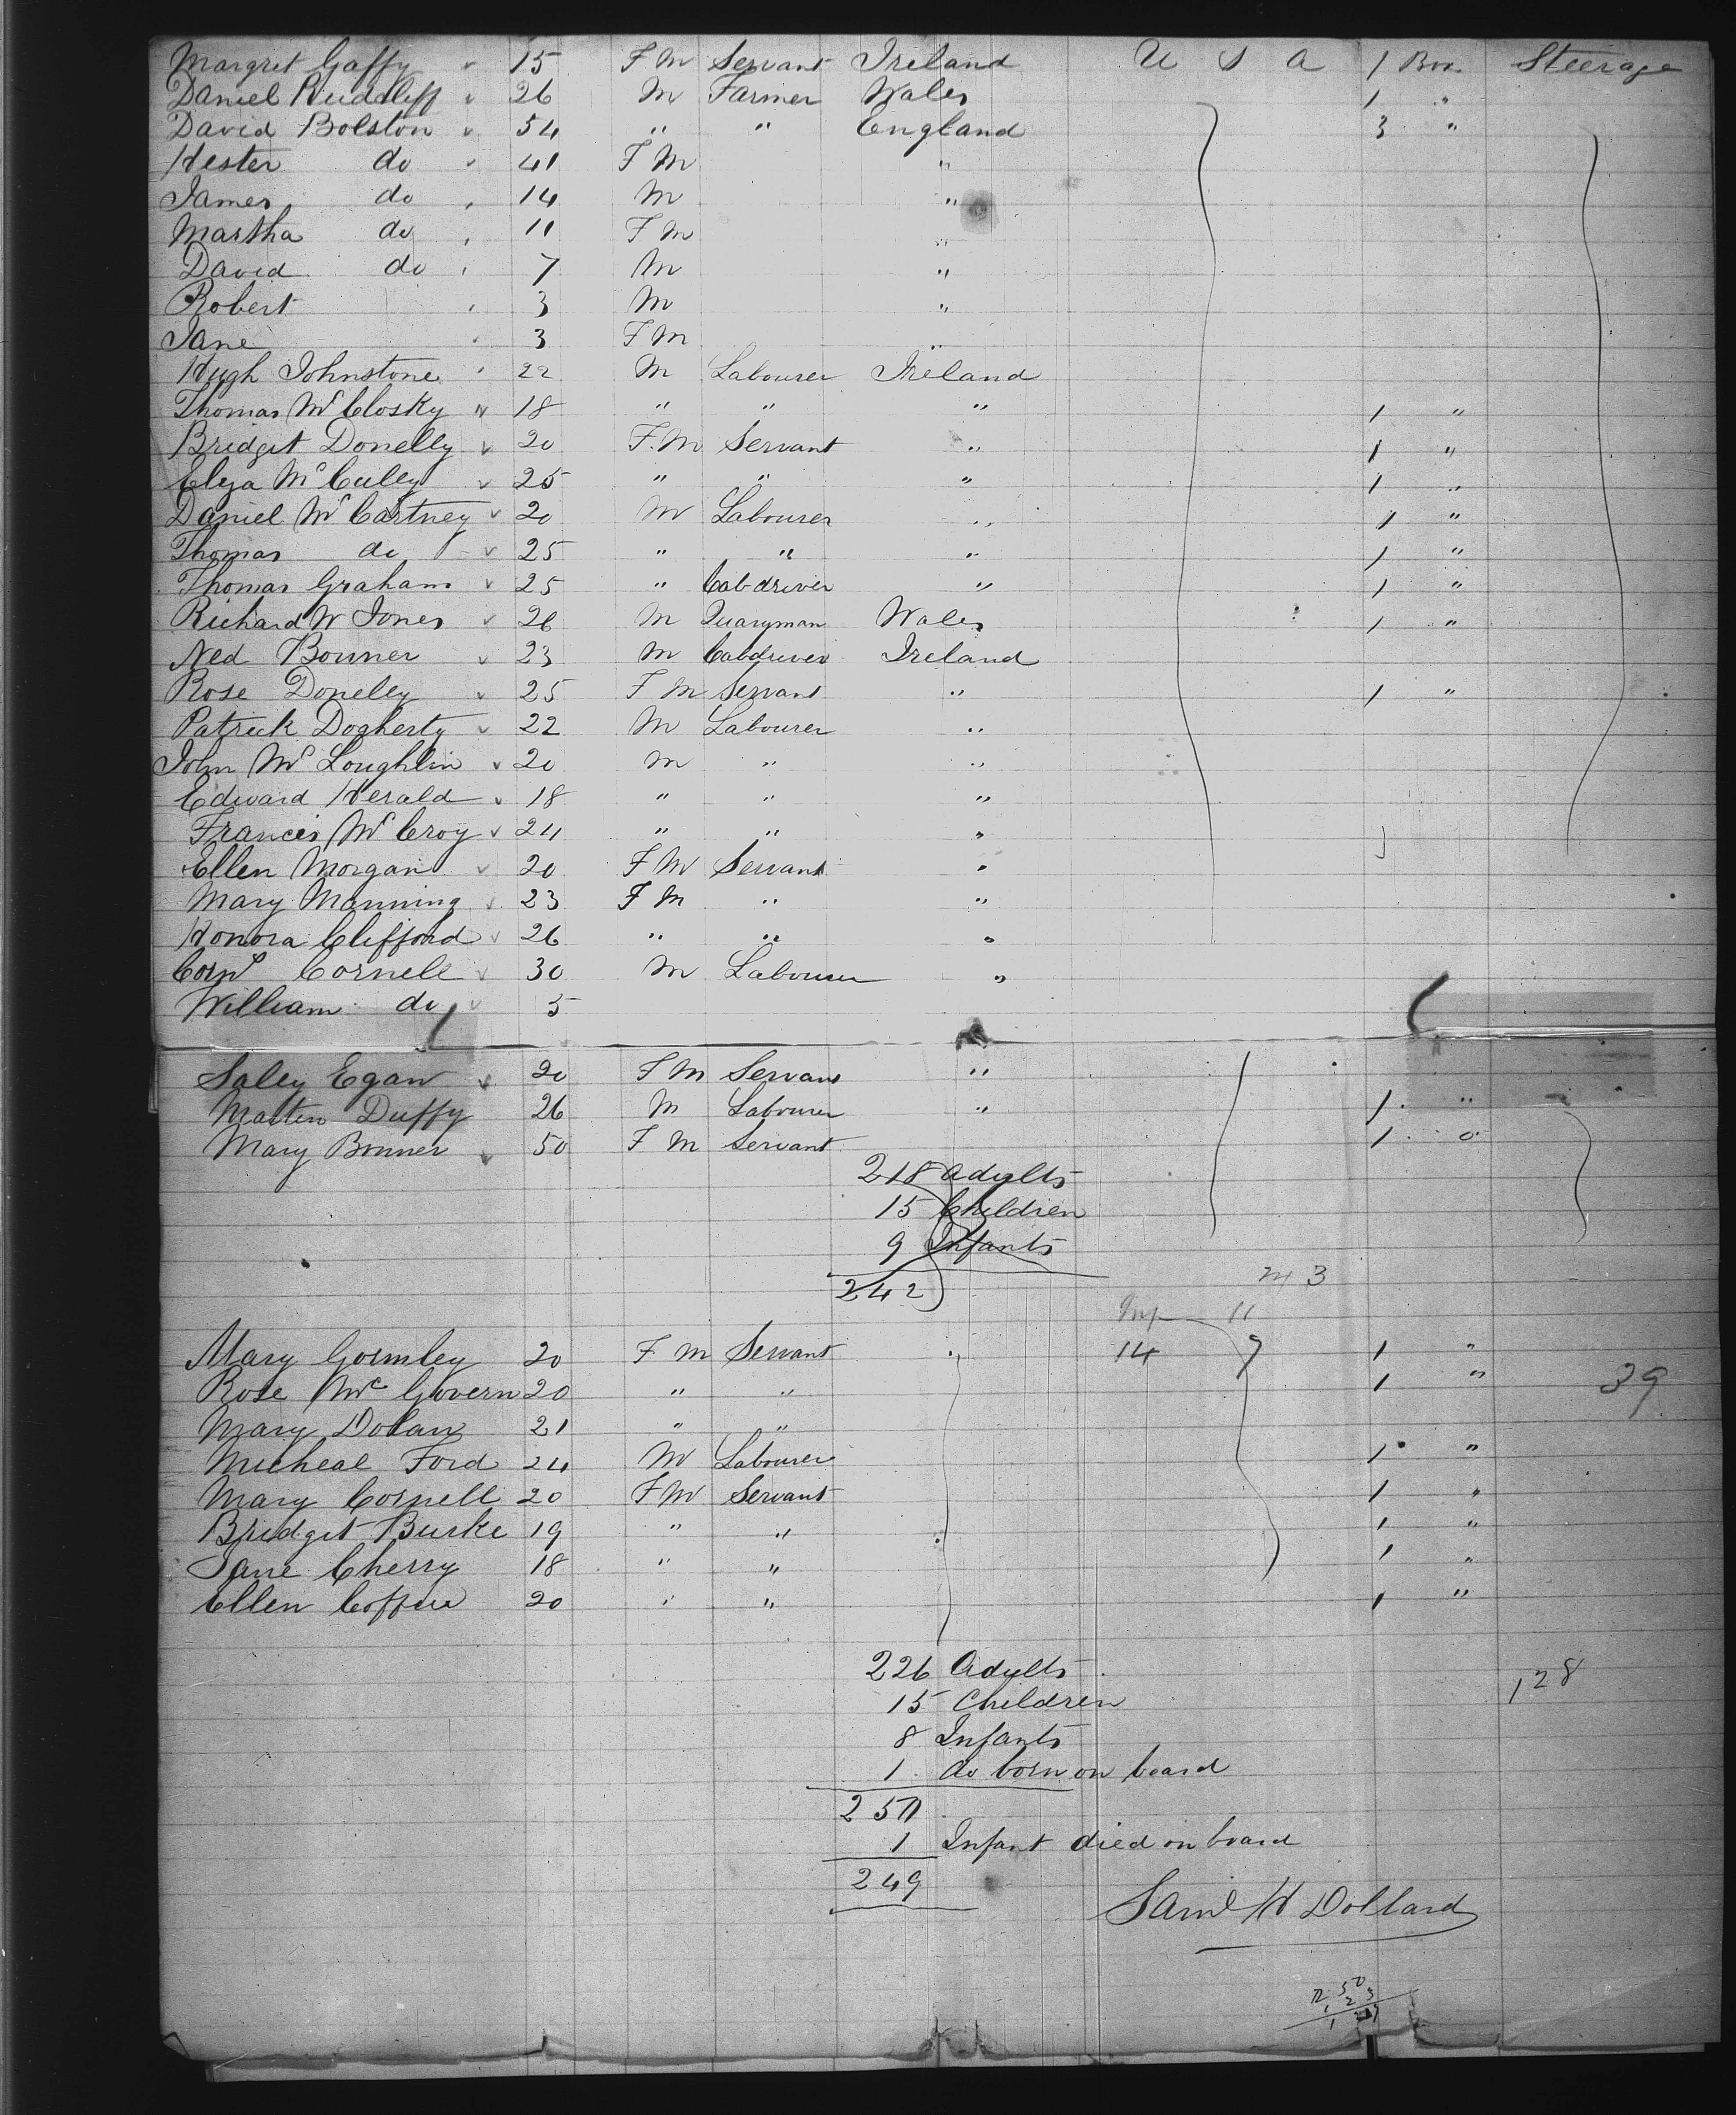 Margret Gaffy 15 F M Servant Ireland U S A 1 Box Steerage
Daniel 26 M Farmer Wales 1 "
David Bolston 54 " " England 3 "
Hester do 41 F M "
James do 14 M "
Martha do 11 F M "
David do 7 M "
Robert 3 M "
Jane 3 F M "
Hugh Johnstone 22 M Labourer Ireland
Thomas Mc Closky 18 " " " 1 "
Bridget Donelly 20 F. M Servant " 1 "
Eliza Mc Culey 25 " " " 1 "
Daniel Mc Cartney 20 M Labourer " 1 "
Thomas do 25 " " " 1 "
Thomas Graham 25 " Cabdriver " 1 "
Richard W Jones 26 M Quaryman Wales 1 "
Ned Bonner 23 M Cabdriver Ireland
Rose Doneley 25 F M Servant " 1 "
Patrick Dogherty 22 M Labourer "
John Mc Loughlin 20 M " "
Edward Herald 18 " " "
Francis Mc Croy 24 " " "
Ellen Morgan 20 F M Servant "
Mary Manning 23 F M " "
Honora Clifford 26 " " "
Cornl Cornell 30 M Labourer "
William do 5
Saley Egan 20 F M Servant "
Matten Duffy 26 M Labourer " 1 "
Mary Bonner 50 F M Servant 1 "
218 Adults
15 Children
9 Infants
242
M 3
Inf 11
14
Mary Gormley 20 F M Servant " 1 "
Rose Mc Govern 20 " " 1 "
39
Mary Dolan 21 " "
Micheal Ford 24 M Labourer 1 "
Mary Cornell 20 F M Servant 1 "
Bridget Burke 19 " " 1 "
Jane Cherry 18 " " 1 "
Ellen 20 " " 1 "
226 Adults
128
15 Children
8 Infants
1 do born on board
250
1 Infant died on board
249
Saml H Dollard